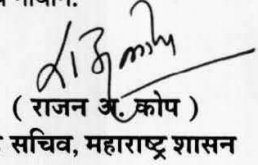 ( राजन अ. कोप )
सचिव, महाराष्ट्र शासन